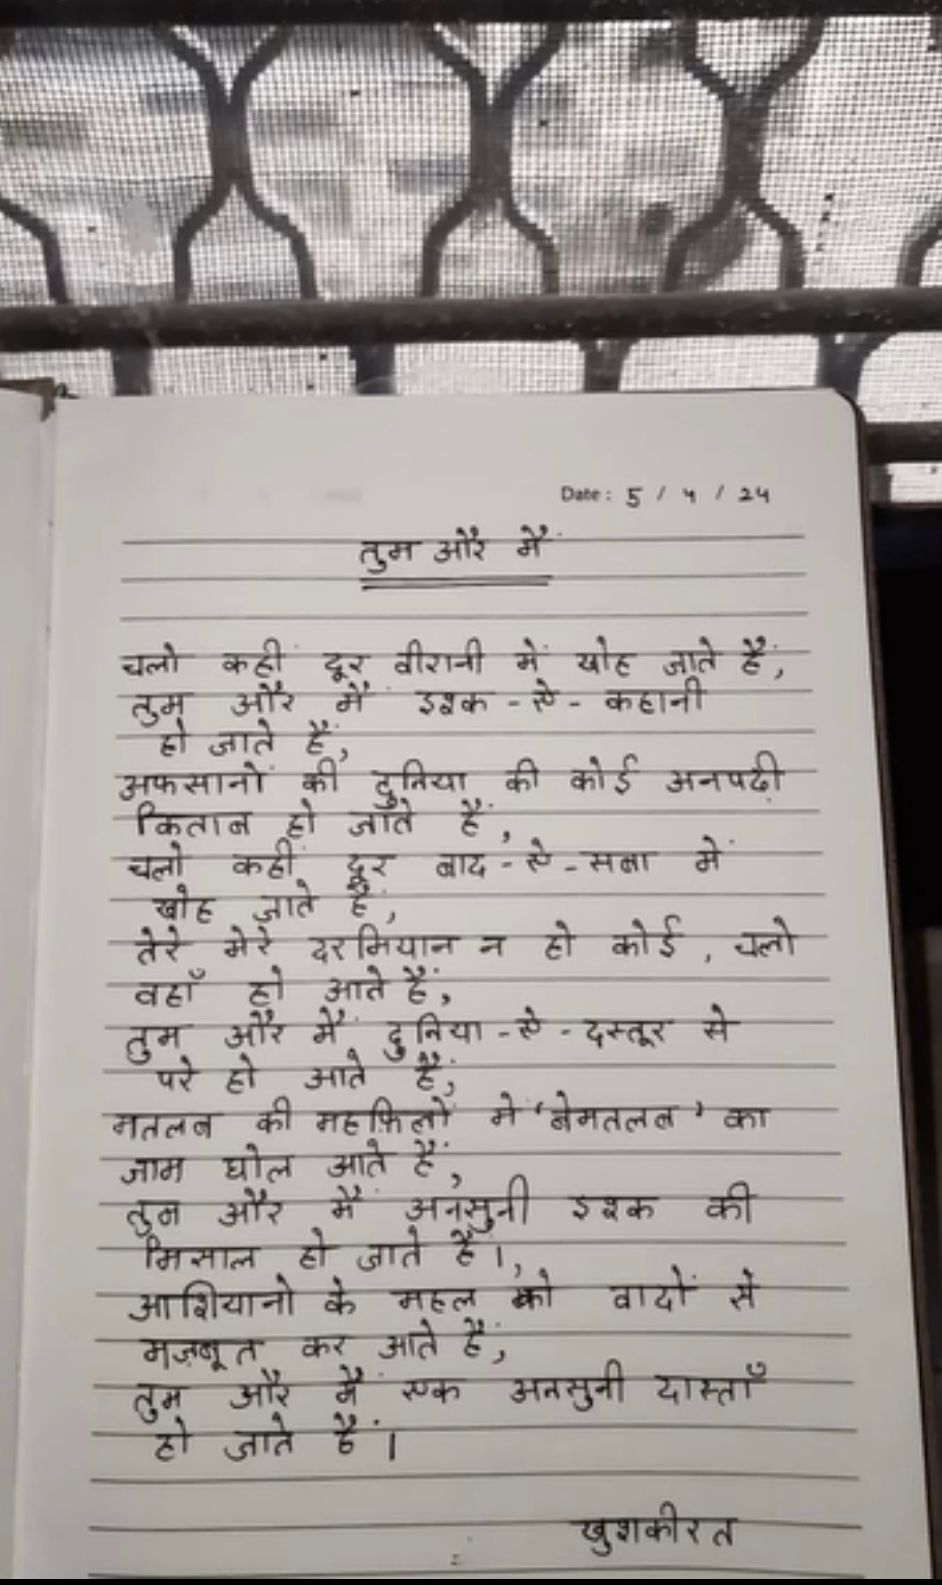 Date : 5 / 4 / 24
तुम और मैं
चलो कहीं दूर वीरानी में खोह जाते हैं,
तुम और मैं इश्क - ऐ - कहानी
हो जाते हैं,
अफसानों की दुनिया की कोई अनपढ़ी
किताब हो जाते हैं,
चलो कहीं दूर बाद - ऐ - सबा में
खोह जाते हैं,
तेरे मेरे दरमियान न हो कोई , चलो
वहाँ हो आते हैं,
तुम और मैं दुनिया - ऐ - दस्तूर से
परे हो आते हैं,
मतलब की महफ़िलों में 'बेमतलब' का
जाम घोल आते हैं,
तुम और मैं अनसुनी इश्क की
मिसाल हो जाते हैं।,
आशियानो के महल को वादों से
मज़बूत कर आते हैं,
तुम और मैं एक अनसुनी दास्ताँ
हो जाते हैं।
खुशकीरत